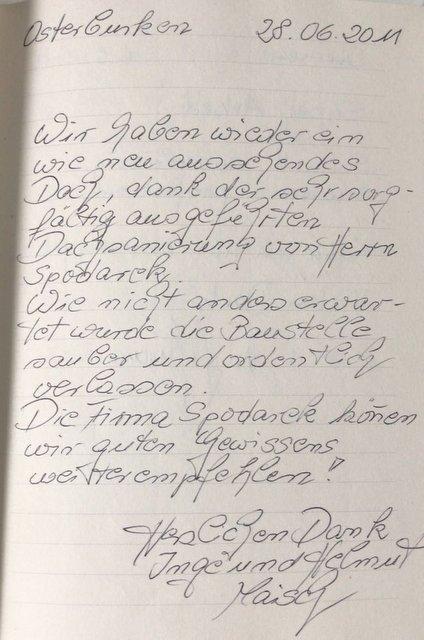 Osterburken 28.06.2011
Wir haben wieder ein
wie neu aussehendes
Dach, dank der sehr sorg-
fältig ausgeführten
Dachsanierung von Herrn
Spodarek.
Wie nicht anders erwar-
tet wurde die Baustelle
sauber und ordentlich
verlassen.
Die Firma Spodarek könen
wir guten Gewissens
weiterempfehlen!
Herzlichen Dank
Inge und Helmut
Maisch